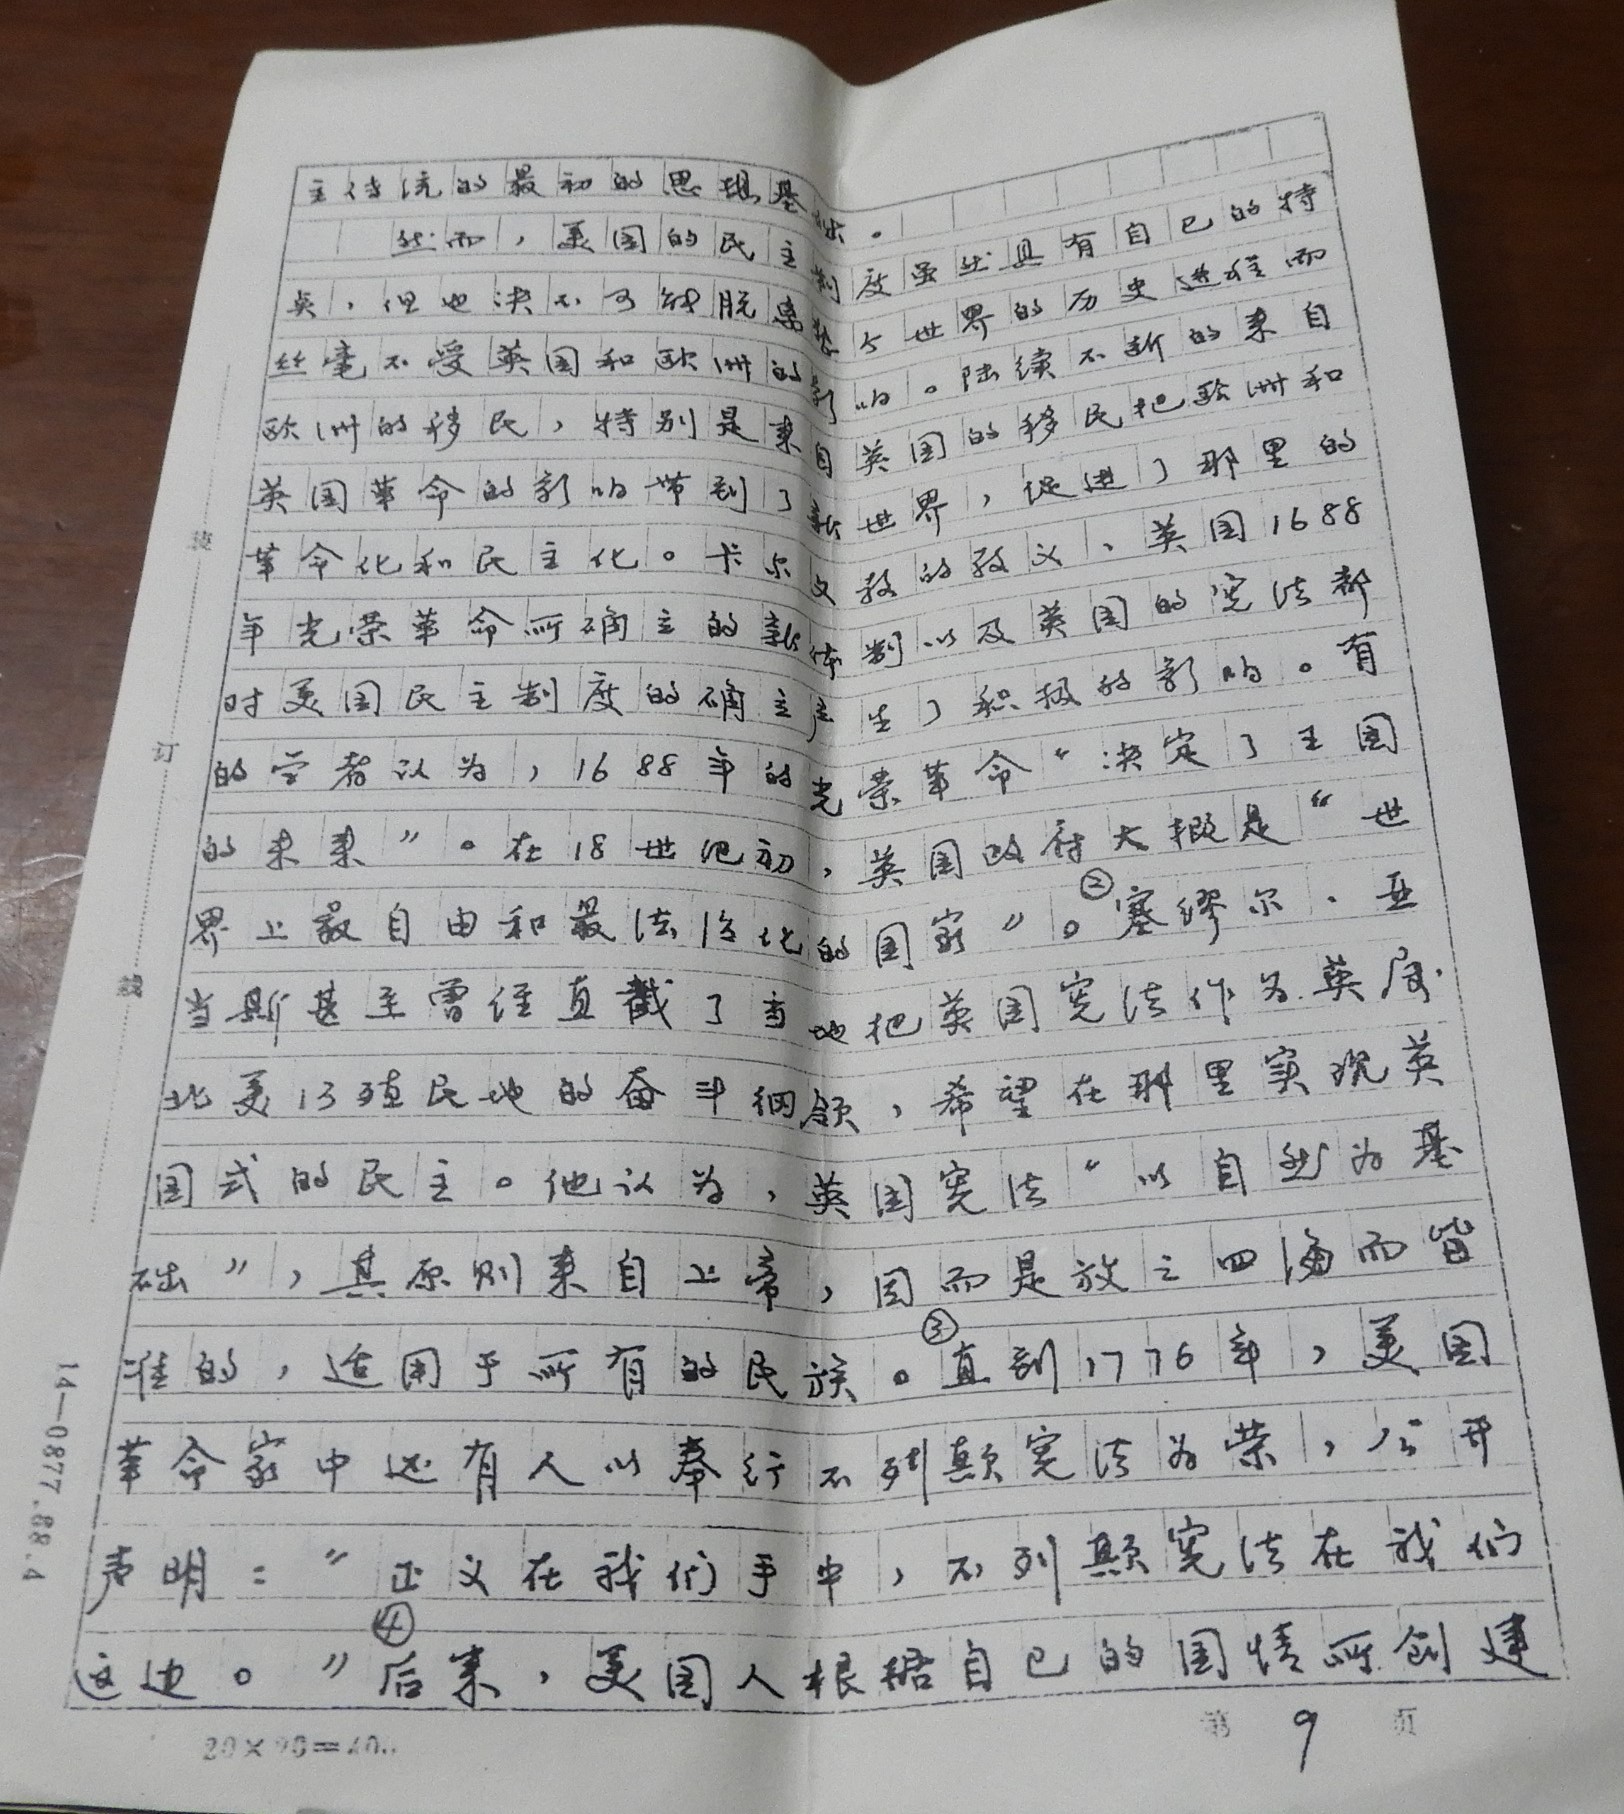 主传统的最初的思想基础。
然而，美国的民主制度虽然具有自己的特
点，但也决不可能脱离整个世界的历史进程而
丝毫不受英国和欧洲的影响。陆续不断的来自
欧洲的移民，特别是来自英国的移民把欧洲和
英国革命的影响带到了新世界，促进了那里的
革命化和民主化。卡尔文教的教义、英国1688
年光荣革命所确立的新体制以及英国的宪法都
对美国民主制度的确立产生了积极的影响。有
的学者认为，1688年的光荣革命“决定了王国
的未来”。在18世纪初，英国政府大概是“世
界上最自由和最法治化的国家”。②塞缪尔·亚
当斯甚至曾经直截了当地把英国宪法作为英属
北美13殖民地的奋斗纲领，希望在那里实现英
国式的民主。他认为，英国宪法“以自然为基
础”，其原则来自上帝，因而是放之四海而皆
准的，适用于所有的民族。③直到1776年，美国
革命家中还有人以奉行不列颠宪法为荣，公开
声明：“正义在我们手中，不列颠宪法在我们
这边。”④后来，美国人根据自己的国情所创建
装
订
线
14—0877.88.4
20×20=400
第 9 页